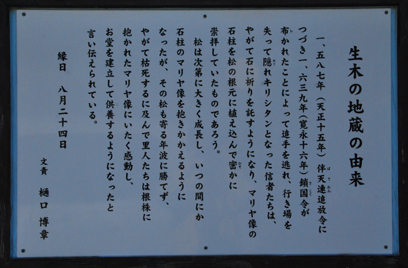 生木の地蔵の由来
一、五八七年（天正十五年）伴天連追放令に
つづき一、六三九年（寛永十六年）鎖国令が
布かれたことによって追手を逃れ、行き場を
失って隠れキリシタンとなった信者たちは、
やがて石に祈りを託すようになり、マリヤ像の
石柱を松の根元に植え込んで密かに
崇拝していたものであろう。
松は次第に大きく成長し、いつの間にか
石柱のマリヤ像を抱きかかえるように
なったが、その松も寄る年波に勝てず、
やがて枯死するに及んで里人たちは根株に
抱かれたマリヤ像にいたく感動し、
お堂を建立して供養するようになったと
言い伝えられている。
縁日 八月二十四日
文責 樋口博章